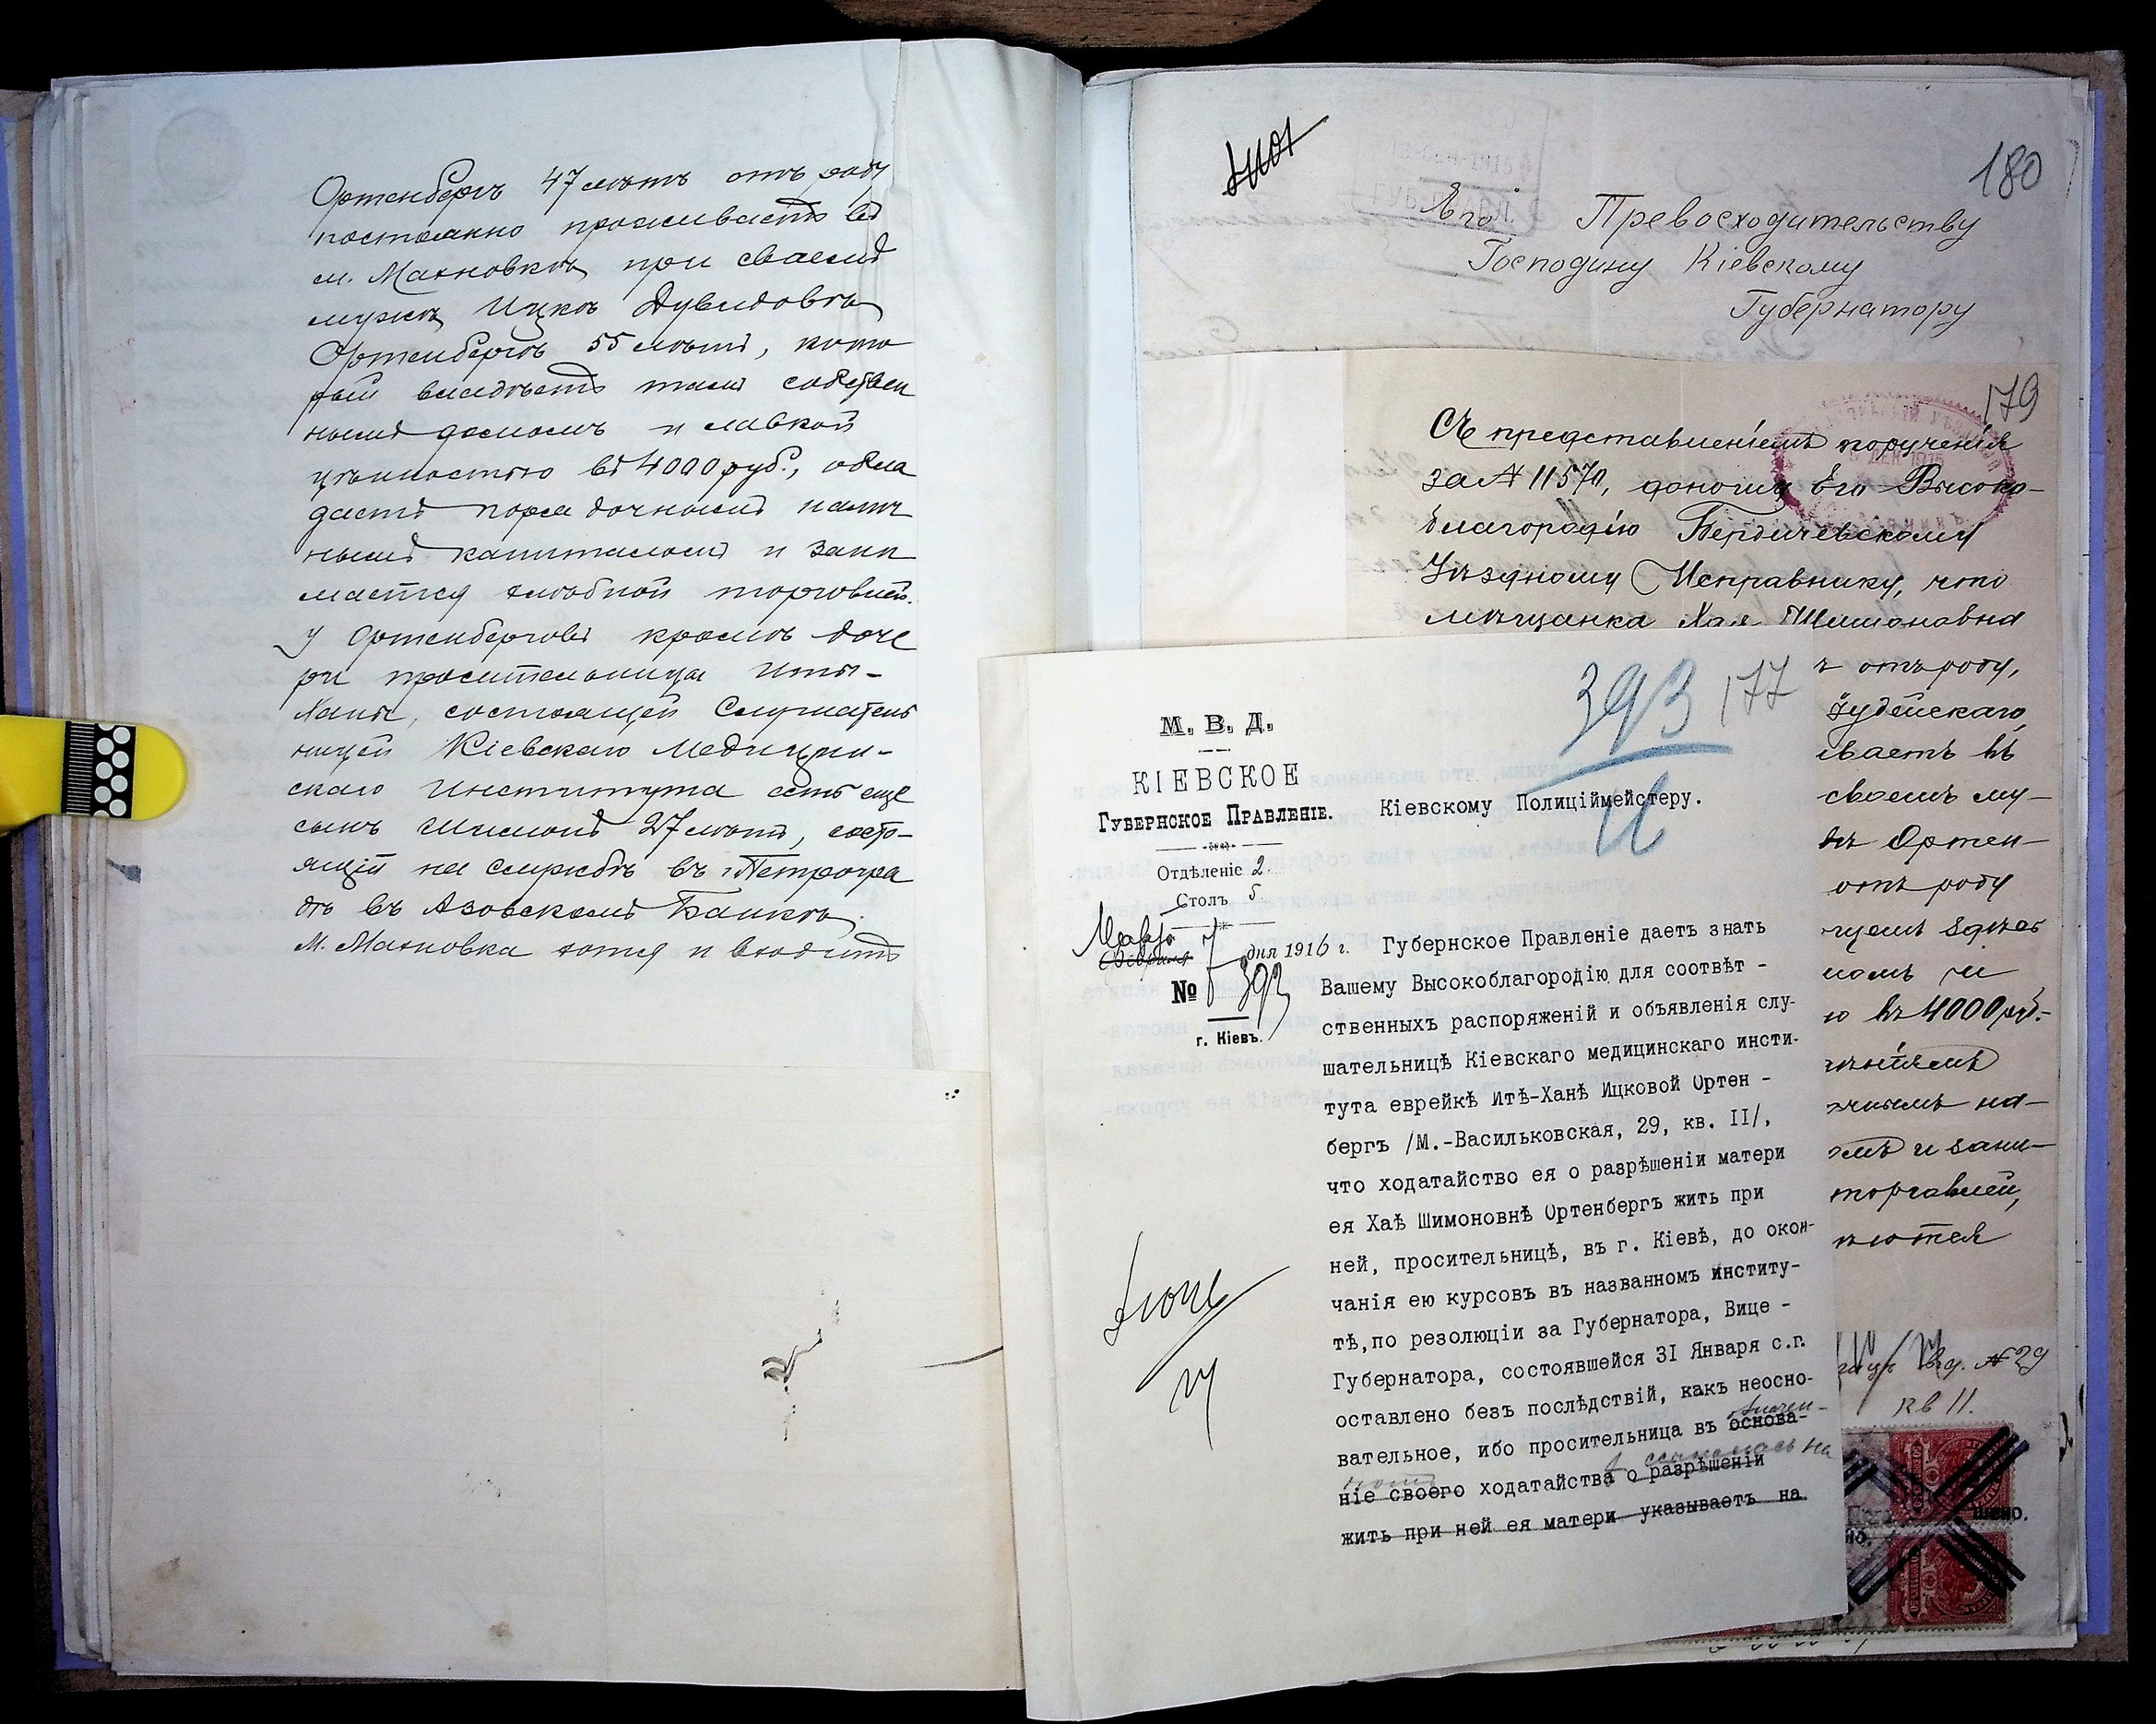 Ортенбергъ 47 лѣтъ отъ роду
постоянно проживаетъ въ
м. Махновкѣ при своемъ
мужѣ Ицкѣ Дувидовѣ
Ортенбергѣ 55 лѣтъ, кото
рый владѣетъ тамъ собствен
нымъ домомъ и лавкой
цѣнностью въ 4000 руб., обла
даетъ порядочнымъ налич
нымъ капиталомъ и зани
мается хлѣбной торговлей.
У Ортенберговъ кромѣ доче
ри просительницы Иты-
Ханы, состоящей слушатель
ницей Кіевскаго Медицин-
скаго Института есть еще
сынъ Шимонъ 27 лѣтъ, состо-
ящій на службѣ въ г. Петрогра
дѣ въ Азовскомъ Банкѣ.
М. Махновка хотя и входитъ
180
Его Превосходительству
Господину Кіевскому
Губернатору
179
Съ представленіемъ порученія
за № 11570, доношу Его Высоко-
благородію Бердичевскому
Уѣздному Исправнику, что
мѣщанка Хая Шимоновна
ъ отъ роду,
Іудейскаго
ваетъ въ
своемъ му-
Ортен-
отъ роду
номъ и
ю въ 4000 руб.-
на-
и зани-
торговлей,
ются
№ 29
кв 11.
393
177
М. В. Д.
КІЕВСКОЕ
ГУБЕРНСКОЕ ПРАВЛЕНІЕ.
Отдѣленіе 2.
Столъ 5.
Марта
Февраля 7 дня 1916 г.
№ 393
г. Кіевъ.
Кіевскому Полиціймейстеру.
Губернское Правленіе даетъ знать
Вашему Высокоблагородію для соотвѣт -
ственныхъ распоряженій и объявленія слу-
шательницѣ Кіевскаго медицинскаго инсти-
тута еврейкѣ Итѣ-Ханѣ Ицковой Ортен -
бергъ /М.-Васильковская, 29, кв. II/,
что ходатайство ея о разрѣшеніи матери
ея Хаѣ Шимоновнѣ Ортенбергъ жить при
ней, просительницѣ, въ г. Кіевѣ, до окон-
чанія ею курсовъ въ названномъ институ-
тѣ,по резолюціи за Губернатора, Вице -
Губернатора, состоявшейся 3I Января с.г.
оставлено безъ послѣдствій, какъ неосно-
вательное, ибо просительница въ основа-
ніе своего ходатайства о разрѣшеніи
сослалась на
жить при ней ея матери указываетъ на